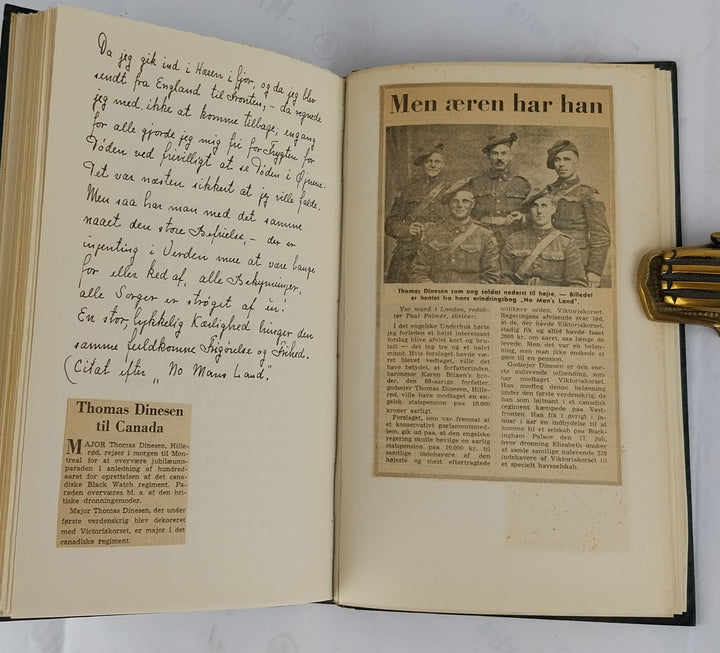 Da jeg gik ind i Hæren i fjor, og da jeg blev
sendt fra England til Fronten, – da regnede
jeg med ikke at komme tilbage; engang
for alle gjorde jeg mig fri for Frygten for
Døden ved frivilligt at se Døden i Øjnene.
Det var næsten sikkert at jeg ville falde.
Men saa har man med det samme
naaet den store Befrielse, – der er
ingenting i Verden mere at være bange
for eller ked af, alle Bekymringer,
alle Sorger er strøget af én!
En stor, lykkelig Kærlighed bringer den
samme fuldkomne Frigørelse og Frihed.
(Citat efter „No Mans Land".
Thomas Dinesen
til Canada
MAJOR Thomas Dinesen, Hille-
rød, rejser i morgen til Mon-
treal for at overvære jubilæums-
paraden i anledning af hundred-
aaret for oprettelsen af det cana-
diske Black Watch regiment. Pa-
raden overværes bl. a. af den bri-
tiske dronningemoder.
Major Thomas Dinesen, der under
første verdenskrig blev dekoreret
med Victoriakorset, er major i det
canadiske regiment.
Men æren har han
Thomas Dinesen som ung soldat nederst til højre. — Billedet
er hentet fra hans erindringsbog „No Man's Land".
Vor mand i London, redak-
tør Paul Palmer, skriver:
I det engelske Underhus hørte
jeg forleden et højst interessant
forslag blive afvist kort og bru-
talt — det tog tre et halvt
minut. Hvis forslaget havde væ-
ret blevet vedtaget, ville det
have betydet, at forfatterinden,
baronesse Karen Blixen's bro-
der, den 69-aarige forfatter,
godsejer Thomas Dinesen, Hille-
rød, ville have modtaget en en-
gelsk statspension paa 10.000
kroner aarligt.
Forslaget, som var fremsat af
et konservativt parlamentsmed-
lem, gik ud paa, at den engelske
regering skulle bevilge en aarlig
statspension paa 10.000 kr. til
samtlige indehavere af den
højeste og mest eftertragtede
militære orden, Viktoriakorset.
Regeringens afvisende svar lød,
at de, der havde Viktoriakorset,
stadig fik og altid havde faaet
2000 kr. om aaret, saa længe de
levede. Men det var en beløn-
ning, som man ikke ønskede at
føre til en pension.
Godsejer Dinesen er den ene-
ste nulevende udlænding, som
har modtaget Viktoriakorset.
Han modtog denne belønning
under den første verdenskrig, da
han som løjtnant i et canadisk
regiment kæmpede paa Vest-
fronten. Han fik i øvrigt i ja-
nuar i aar en indbydelse til at
komme til et selskab paa Buck-
ingham Palace den 17. juli,
hvor dronning Elizabeth ønsker
at samle samtlige nulevende 239
indehavere af Viktoriakorset til
et specielt haveselskab.